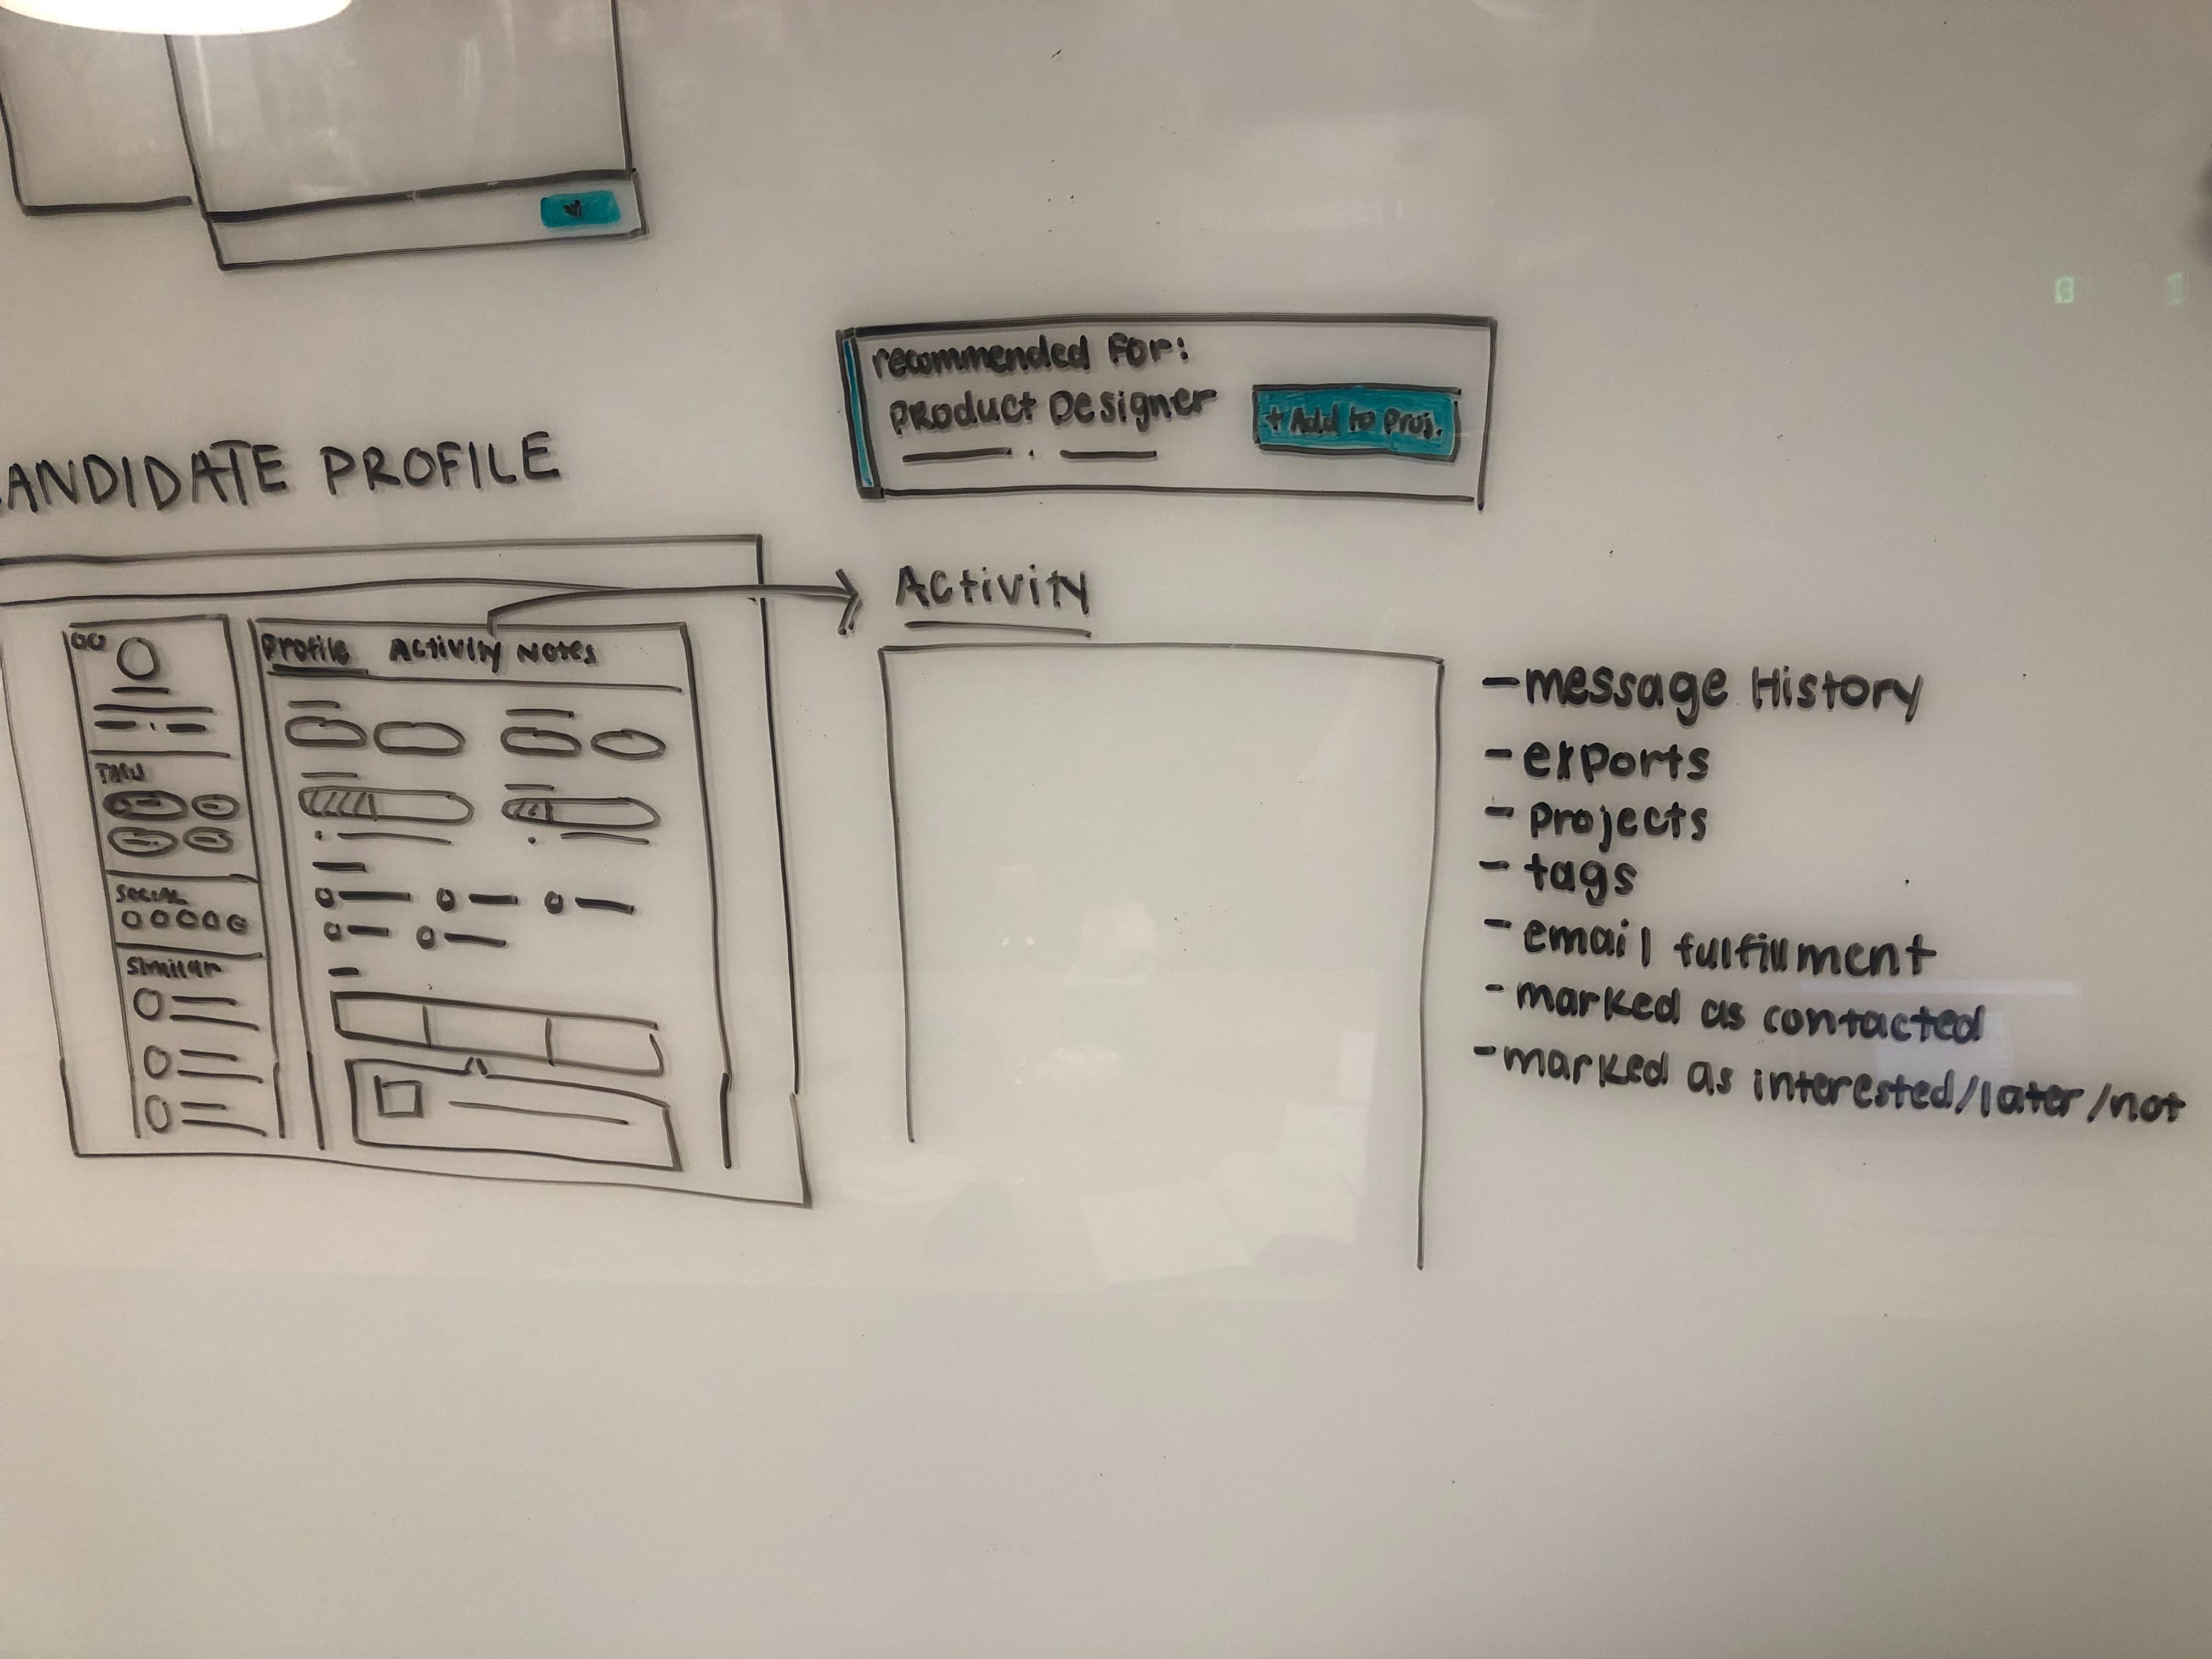 recommended For:
Product Designer
+ Add to proj.
ANDIDATE PROFILE
Activity
Profile Activity Notes
TAGS
Social
Similar
- message History
- exports
- projects
- tags
- email fulfillment
- marked as contacted
- marked as interested/later/not